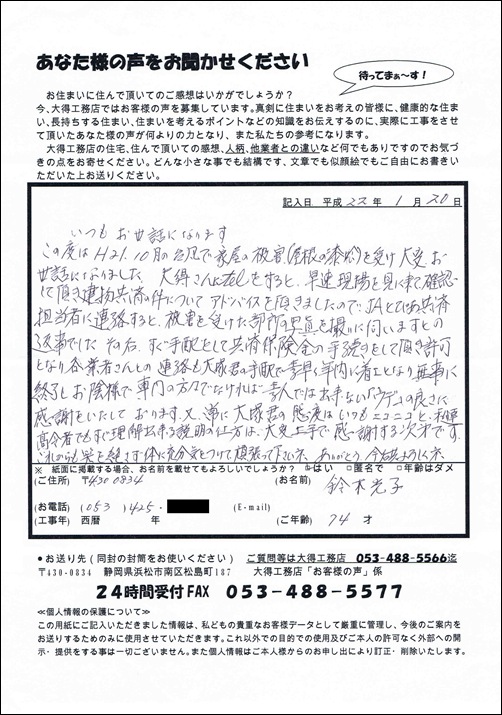 あなた様の声をお聞かせください
待ってまぁ～す！
お住まいに住んで頂いてのご感想はいかがでしょうか？
今、大得工務店ではお客様の声を募集しています。真剣に住まいをお考えの皆様に、健康的な住ま
い、長持ちする住まい、住まいを考えるポイントなどの知識をお伝えするのに、実際に工事をさせ
て頂いたあなた様の声が何よりの力となり、また私たちの参考になります。
大得工務店の住宅、住んで頂いての感想、人柄、他業者との違いなど何でもありですのでお気づ
きの点をお寄せください。どんな小さな事でも結構です、文章でも似顔絵でもご自由にお書きい
ただいた上お送りください。
記入日 平成 22 年 1 月 20 日
いつも お世話になります
この度は H21.10月の台風で家屋の被害(屋根の漆喰)を受け大変お
世話になりました 大得さんにtelをすると、早速現場を見に来て確認
して頂き建物共済の件について アドバイスを頂きましたので、JAとぴあ共済
担当者に連絡すると、被害を受けた部分の写真を撮りに伺いますとの
返事でした その后、すぐ手配をして共済保険金の手続きをして頂き許可
となり各業者さんとの連絡も大塚君の手配で素早く年内に着工となり無事に
終了しお陰様で専門の方々でなければ素人では出来ないウデの良さに
感謝をいたしております。又、特に大塚君の態度はいつもニコニコと、私達
高令者でもすぐ理解出来る説明の仕方は、大変上手で感謝する次第です。
これからも笑を絶さず体に充分気をつけて頑張って下さい ありがとう
※ 紙面に掲載する場合、お名前を載せてもよろしいでしょうか？ □はい □匿名で □年齢はダメ
(ご住所) 〒430 0834 (お名前) 鈴木光子
(お電話) (053) 425- (E-mail)
(工事年) 西暦 年 (ご年齢) 74 才
●お送り先(同封の封筒をお使いください) ご質問等は大得工務店 053-488-5566迄
〒430-0834 静岡県浜松市南区松島町187 大得工務店「お客様の声」係
24時間受付FAX 053-488-5577
≪個人情報の保護について≫
この用紙にご記入いただきました情報は、私どもの貴重なお客様データとして厳重に管理し、今後のご案内を
お送りするためのみに使用させていただきます。これ以外での目的での使用及びご本人の許可なく外部への開
示・提供をする事は一切ございません。また個人情報はご本人様からのお申し出により訂正・削除いたします。